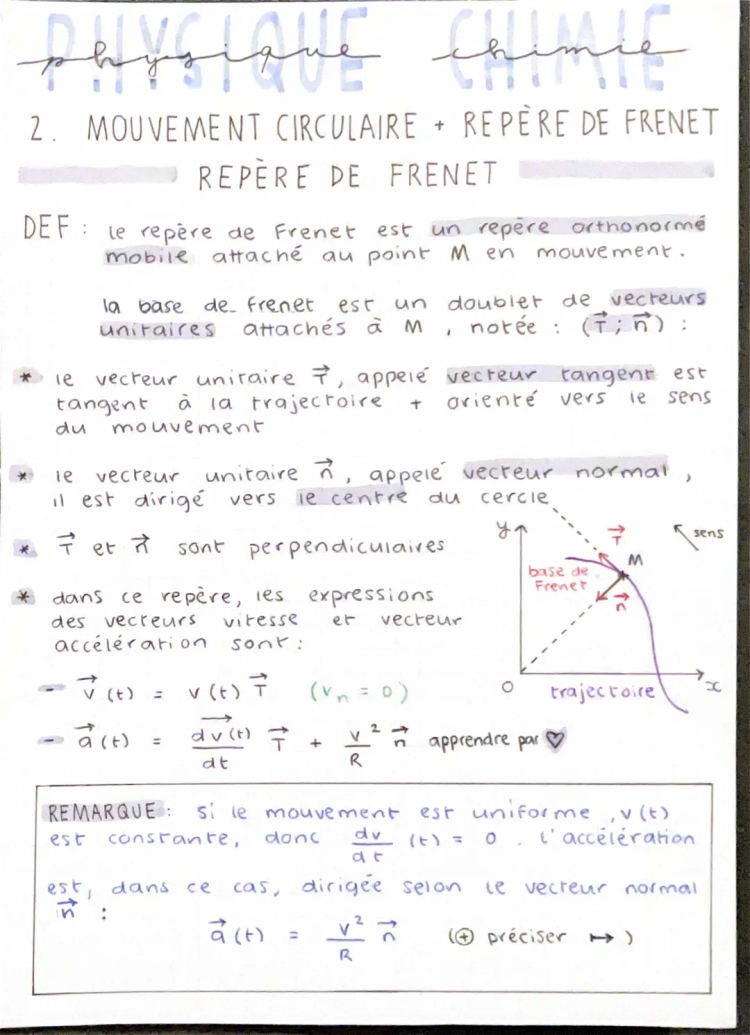 PHYSIQUE CHIMIE
physique chimie
2. MOUVEMENT CIRCULAIRE + REPÈRE DE FRENET
REPÈRE DE FRENET
DEF : le repère de Frenet est un repère orthonormé
mobile attaché au point M en mouvement.
la base de Frenet est un doublet de vecteurs
unitaires attachés à M , notée : (T⃗ ; n⃗) :
* le vecteur unitaire T⃗, appelé vecteur tangent est
tangent à la trajectoire + orienté vers le sens
du mouvement
* le vecteur unitaire n⃗, appelé vecteur normal ,
il est dirigé vers le centre du cercle
* T⃗ et n⃗ sont perpendiculaires
* dans ce repère, les expressions
des vecteurs vitesse et vecteur
accélération sont :
- v⃗ (t) = v(t) T⃗ (vₙ = 0)
- a⃗ (t) = \frac{\overrightarrow{dv(t)}}{dt} T⃗ + \frac{v²}{R} n⃗ apprendre par ♡
y
T⃗
sens
M
base de
Frenet
n⃗
O
trajectoire
x
REMARQUE : si le mouvement est uniforme , v(t)
est constante, donc \frac{dv}{dt} (t) = 0 . l'accélération
est, dans ce cas, dirigée selon le vecteur normal
n⃗ :
a⃗ (t) = \frac{v²}{R} n⃗ (⊕ préciser ↦ )